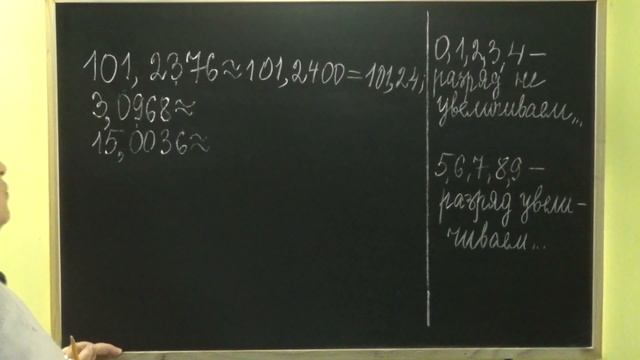 101,2376≈101,2400=101,24;
3,0968≈
15,0036≈
0,1,2,3,4—
разряд не
увеличиваем...
5,6,7,8,9—
разряд увели-
чиваем...